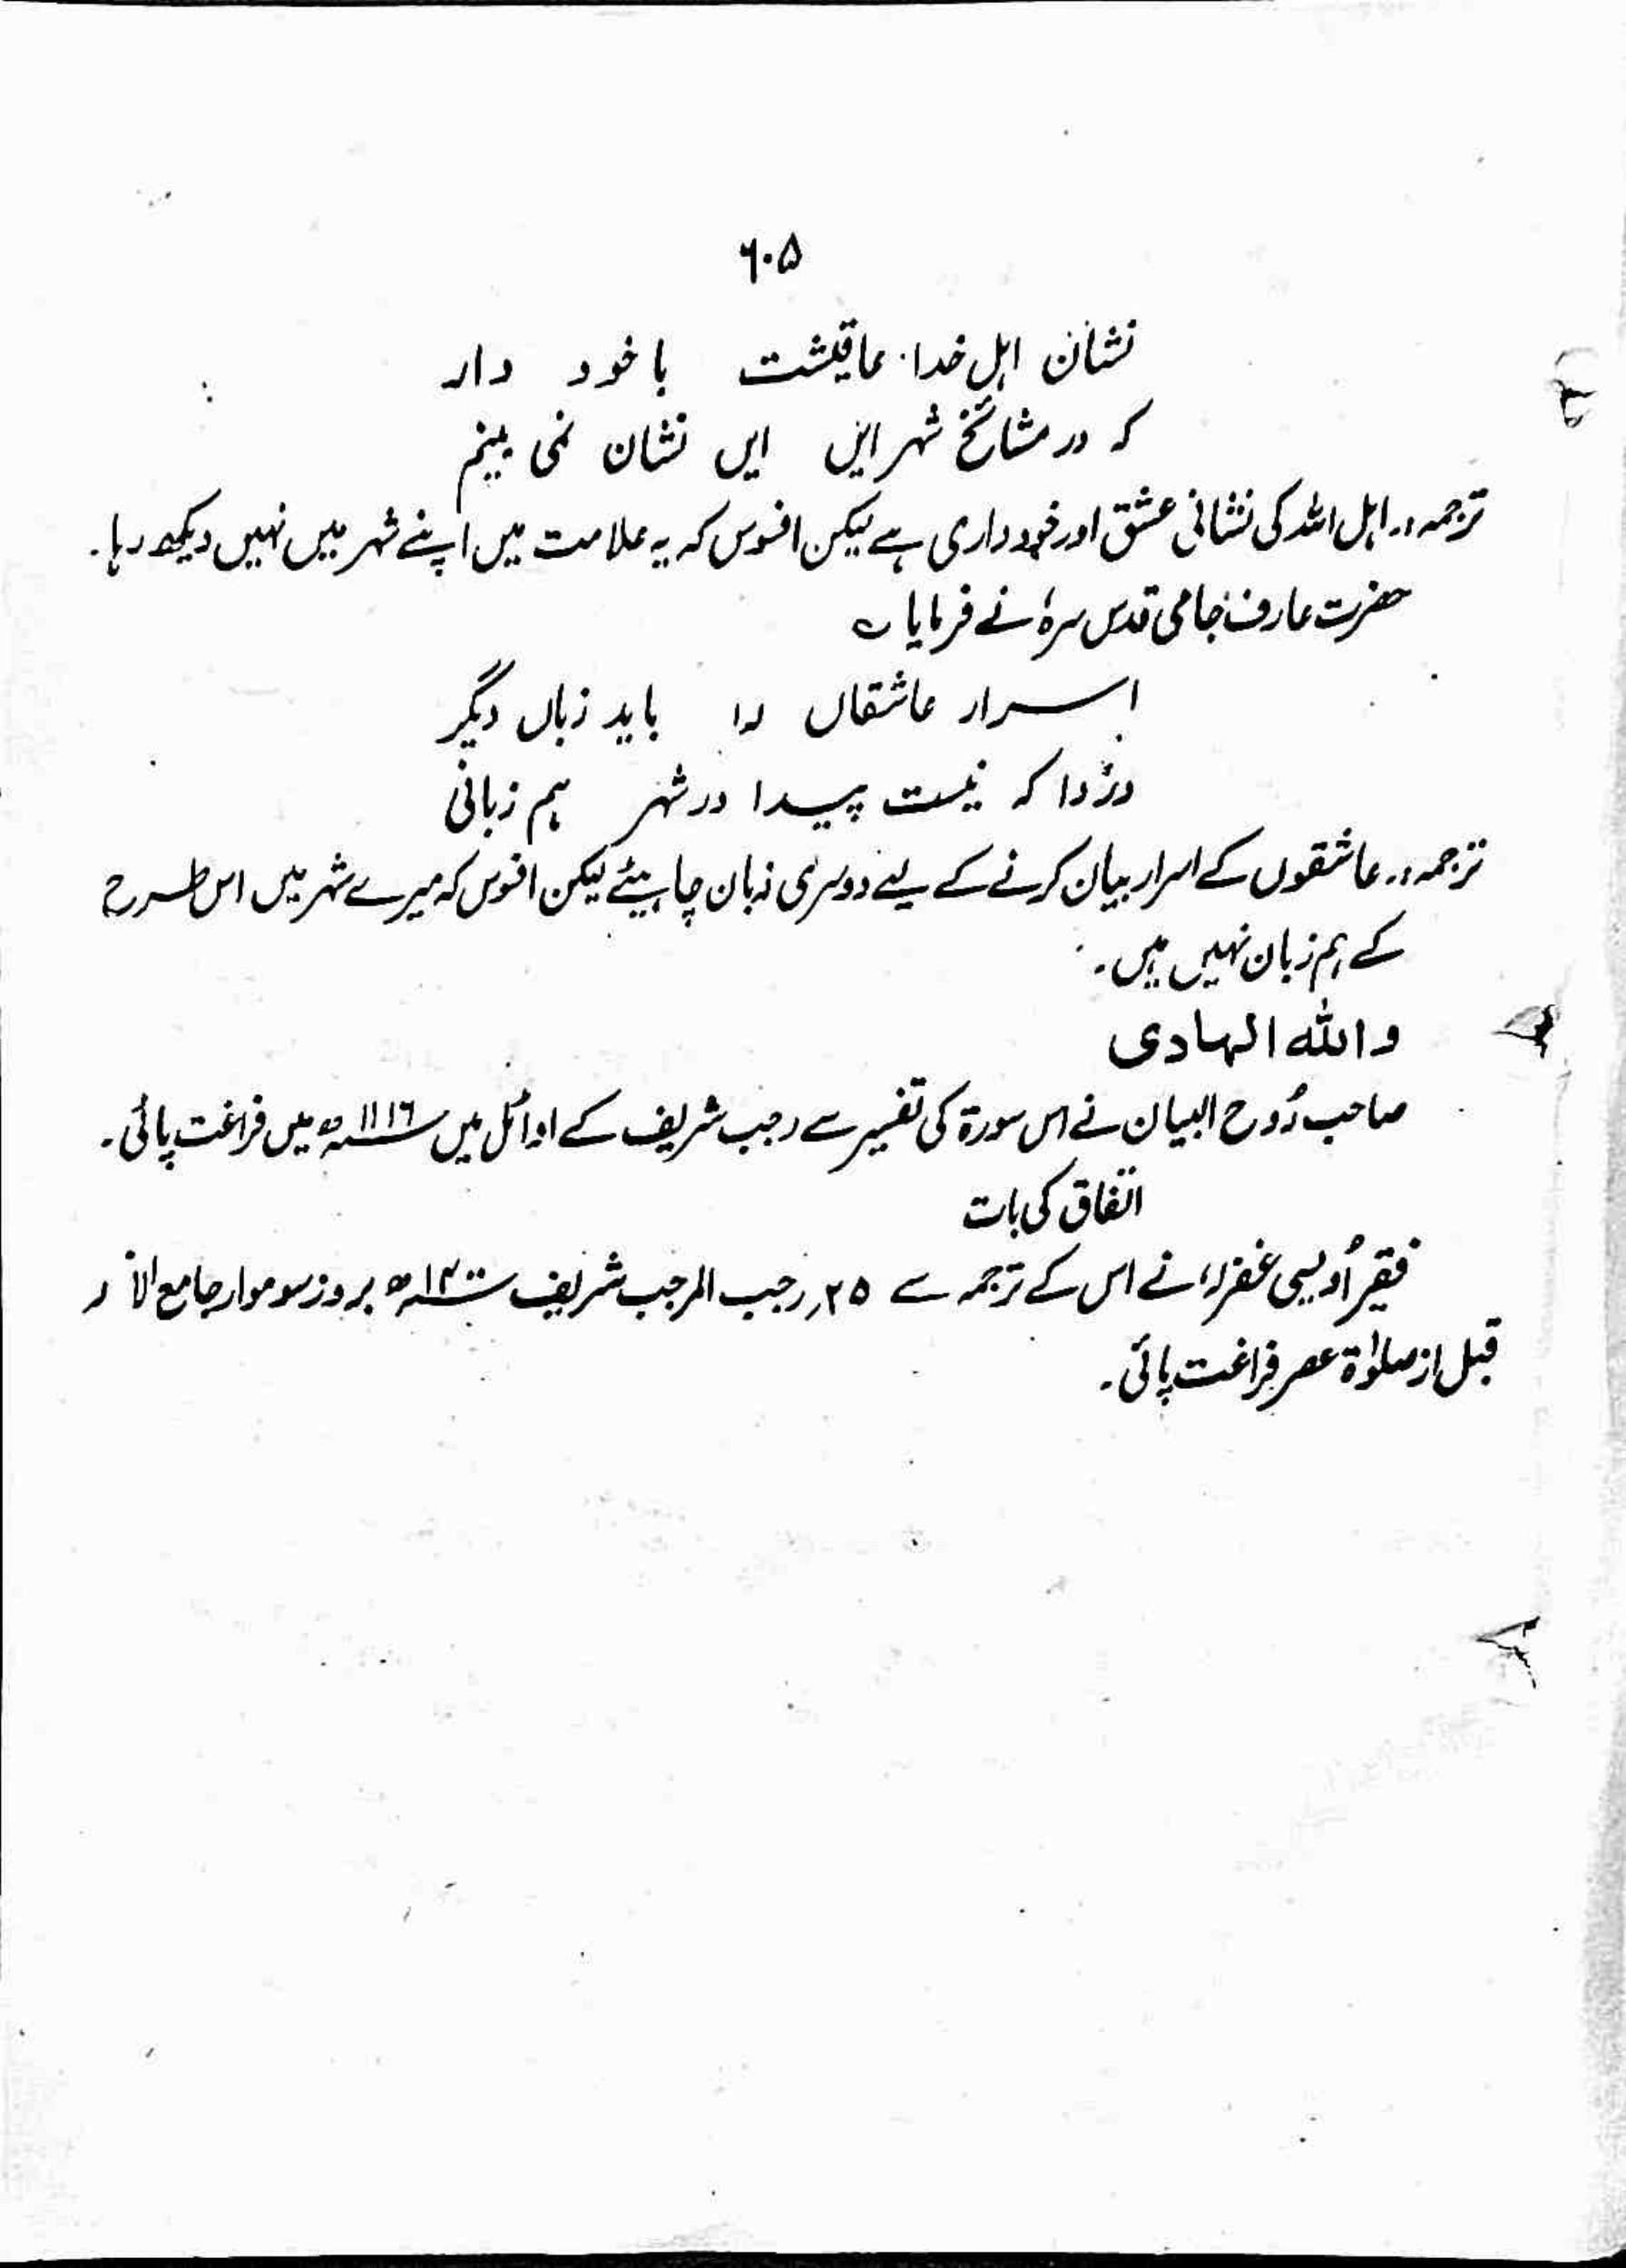 ۶۰۵
نشان اہل خدا عاقیشت با خود دار
کہ در مشائخ شہر این ایں نشان نمی بینم
ترجمہ:۔ اہل اللہ کی نشانی عشق اور خود داری ہے لیکن افسوس کہ یہ علامت میں اپنے شہر میں نہیں دیکھ رہا۔
حضرت عارف جامی قدس سرہٗ نے فرمایا ؎
اسرار عاشقاں را باید زباں دیگر
دردا کہ نیست پیدا در شہر ہم زبانی
ترجمہ:۔ عاشقوں کے اسرار بیان کرنے کے لیے دوسری زبان چاہیئے لیکن افسوس کہ میرے شہر میں اس طرح
کے ہم زبان نہیں ہیں۔
واللہ الہادی
صاحب رُوح البیان نے اس سورۃ کی تفسیر سے رجب شریف کے اوائل میں ۱۱۱۶ھ میں فراغت پائی۔
اتفاق کی بات
فقیر اُویسی غفرلہٗ نے اس کے ترجمہ سے ۲۵؍ رجب المرجب شریف بروز سوموار جامع
قبل از صلوٰۃ عصر فراغت پائی۔